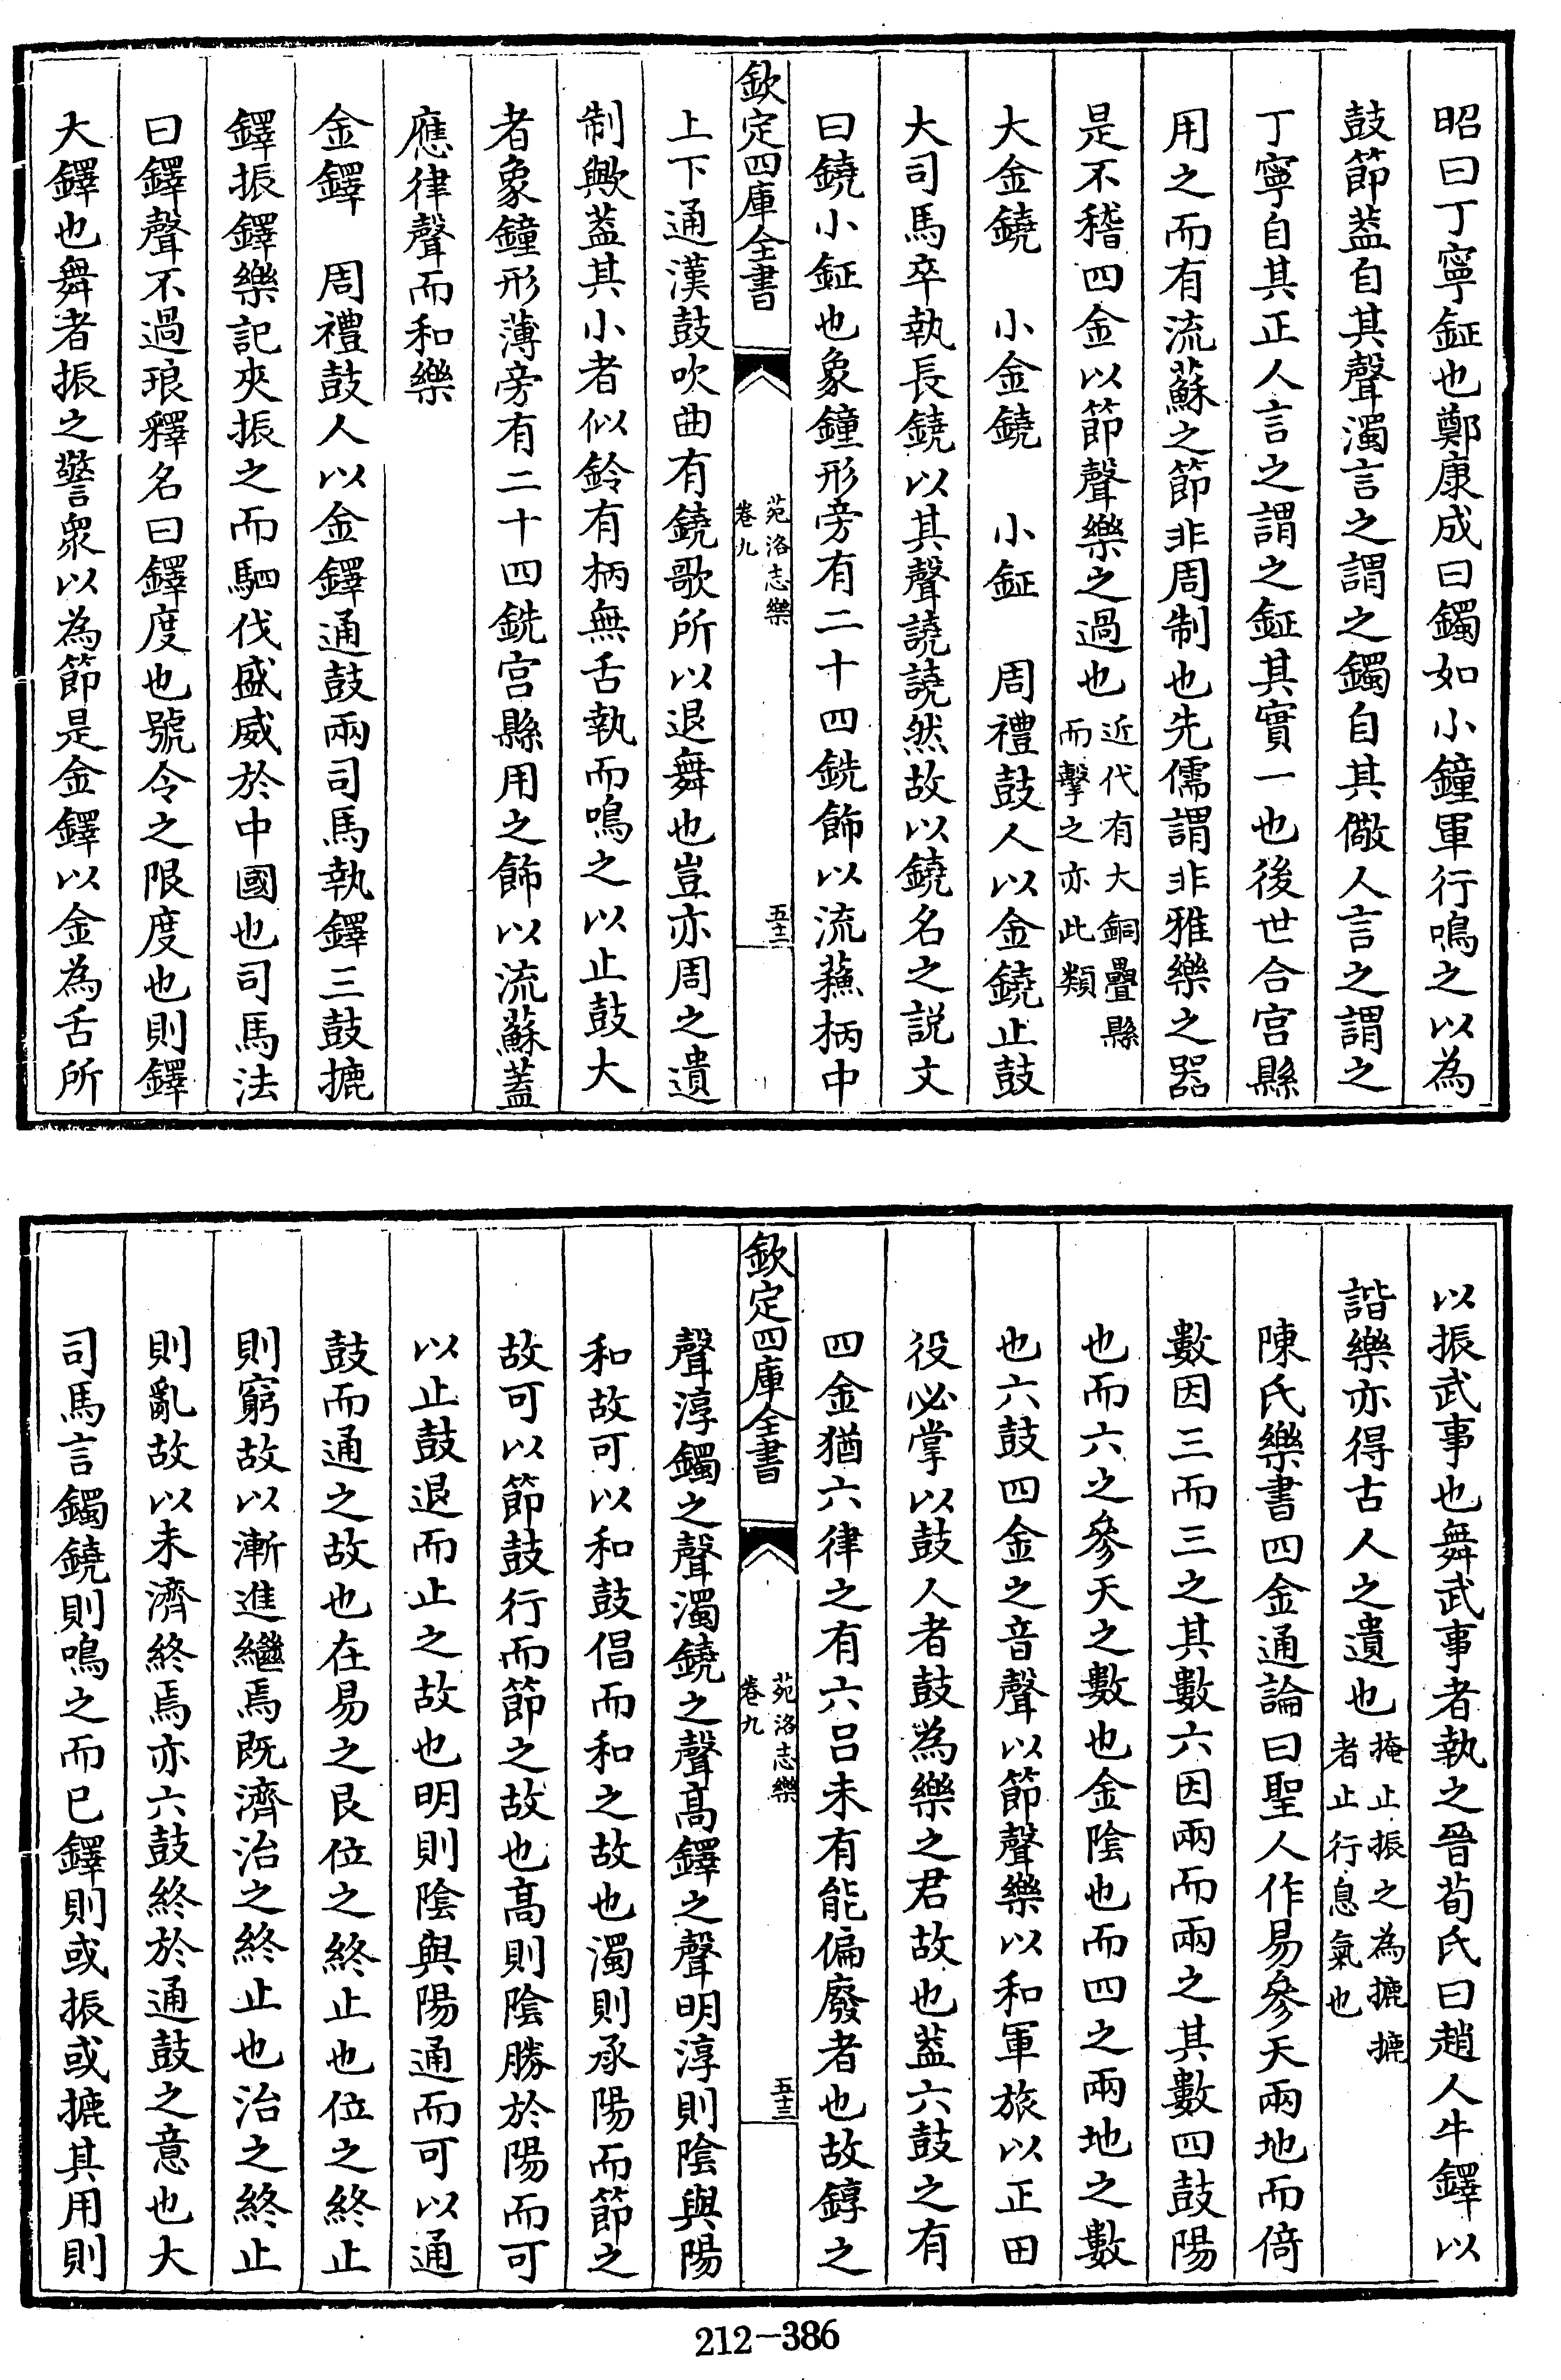 昭曰丁寧鉦也鄭康成曰鐲如小鐘軍行鳴之以為
鼓節葢自其聲濁言之謂之鐲自其儆人言之謂之
丁寧自其正人言之謂之鉦其實一也後世合宫縣
用之而有流蘇之節非周制也先儒謂非雅樂之器
是不稽四金以節聲樂之過也近代有大銅疊縣
而擊之亦此類
大金鐃　小金鐃　小鉦　周禮鼓人以金鐃止鼓
大司馬卒執長鐃以其聲譊譊然故以鐃名之説文
曰鐃小鉦也象鐘形旁有二十四銑飾以流蘓柄中
欽定四庫全書
苑洛志樂
卷九
五十二
上下通漢鼓吹曲有鐃歌所以退舞也豈亦周之遺
制歟葢其小者似鈴有柄無舌執而鳴之以止鼓大
者象鐘形薄旁有二十四銑宫縣用之飾以流蘇蓋
應律聲而和樂
金鐸　周禮鼓人以金鐸通鼓兩司馬執鐸三鼓摝
鐸振鐸樂記夾振之而駟伐盛威於中國也司馬法
曰鐸聲不過琅釋名曰鐸度也號令之限度也則鐸
大鐸也舞者振之警衆以為節是金鐸以金為舌所
以振武事也舞武事者執之晉荀氏曰趙人牛鐸以
諧樂亦得古人之遺也掩止振之為摝摝
者止行息氣也
陳氏樂書四金通論曰聖人作易參天兩地而倚
數因三而三之其數六因兩而兩之其數四鼓陽
也而六之參天之數也金陰也而四之兩地之數
也六鼓四金之音聲以節聲樂以和軍旅以正田
役必掌以鼓人者鼓為樂之君故也葢六鼓之有
四金猶六律之有六吕未有能偏廢者也故錞之
欽定四庫全書
苑洛志樂
卷九
五十三
聲淳鐲之聲濁鐃之聲高鐸之聲明淳則陰與陽
和故可以和鼓倡而和之故也濁則承陽而節之
故可以節鼓行而節之故也高則陰勝於陽而可
以止鼓退而止之故也明則陰與陽通而可以通
鼓而通之故也在易之艮位之終止也位之終止
則窮故以漸進繼焉既濟治之終止也治之終止
則亂故以未濟終焉亦六鼓終於通鼓之意也大
司馬言鐲鐃則鳴之而已鐸則或振或摝其用則
212-386